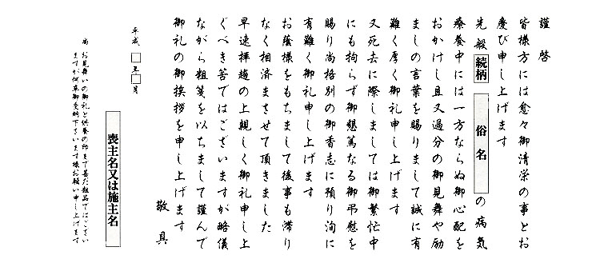 謹啓
皆様方には愈々御清栄の事とお
慶び申し上げます
先般 続柄 俗名 の病気
療養中には一方ならぬ御心配を
おかけし且又過分の御見舞や励
ましの言葉を賜りまして誠に有
難く厚く御礼申し上げます
又死去に際しましては御繁忙中
にも拘らず御懇篤なる御弔慰を
賜り尚格別の御香志に預り洵に
有難く御礼申し上げます
お蔭様をもちまして後事も滞り
なく相済まさせて頂きました
早速拝趨の上親しく御礼申し上
ぐべき筈ではございますが略儀
ながら粗箋を以ちまして謹んで
御礼の御挨拶を申し上げます
敬具
平成□年□月
喪主名又は施主名
尚 お見舞いの御礼と供養の印まで甚だ粗品ではござい
ますが何卒御受納下さいます様お願い申し上げます